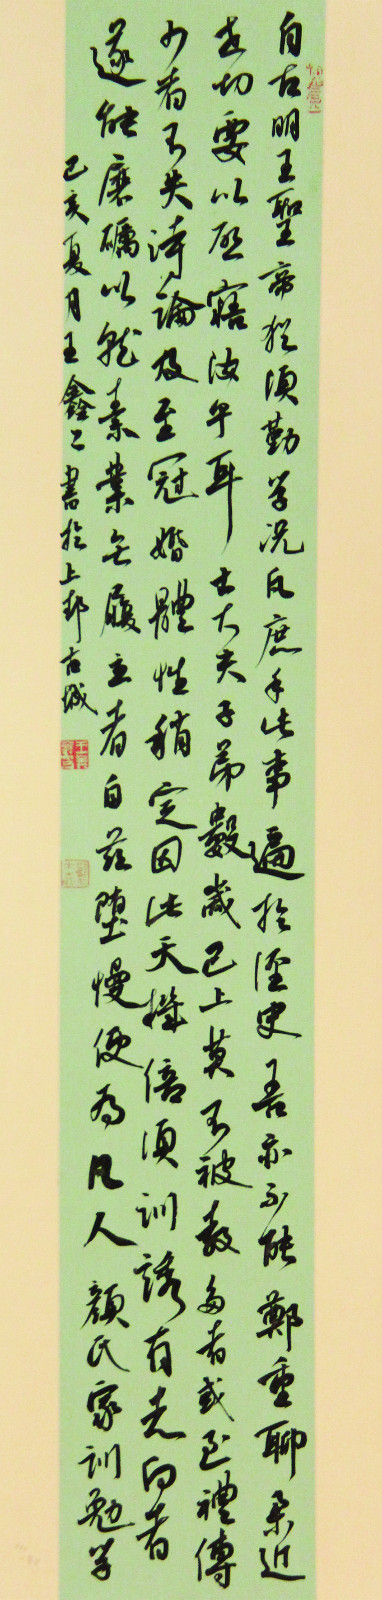 自古明王聖帝猶須勤學況凡庶乎此事遍於經史吾亦不能鄭重聊舉近
世切要以啟寤汝耳士大夫子弟數歲已上莫不被教多者或至禮傳
少者不失詩論及至冠婚體性稍定因此天機倍須訓誘有志向者
遂能磨礪以就素業無履立者自茲墮慢便為凡人 顏氏家訓勉學
己亥夏月王鑫二書於上邽古城